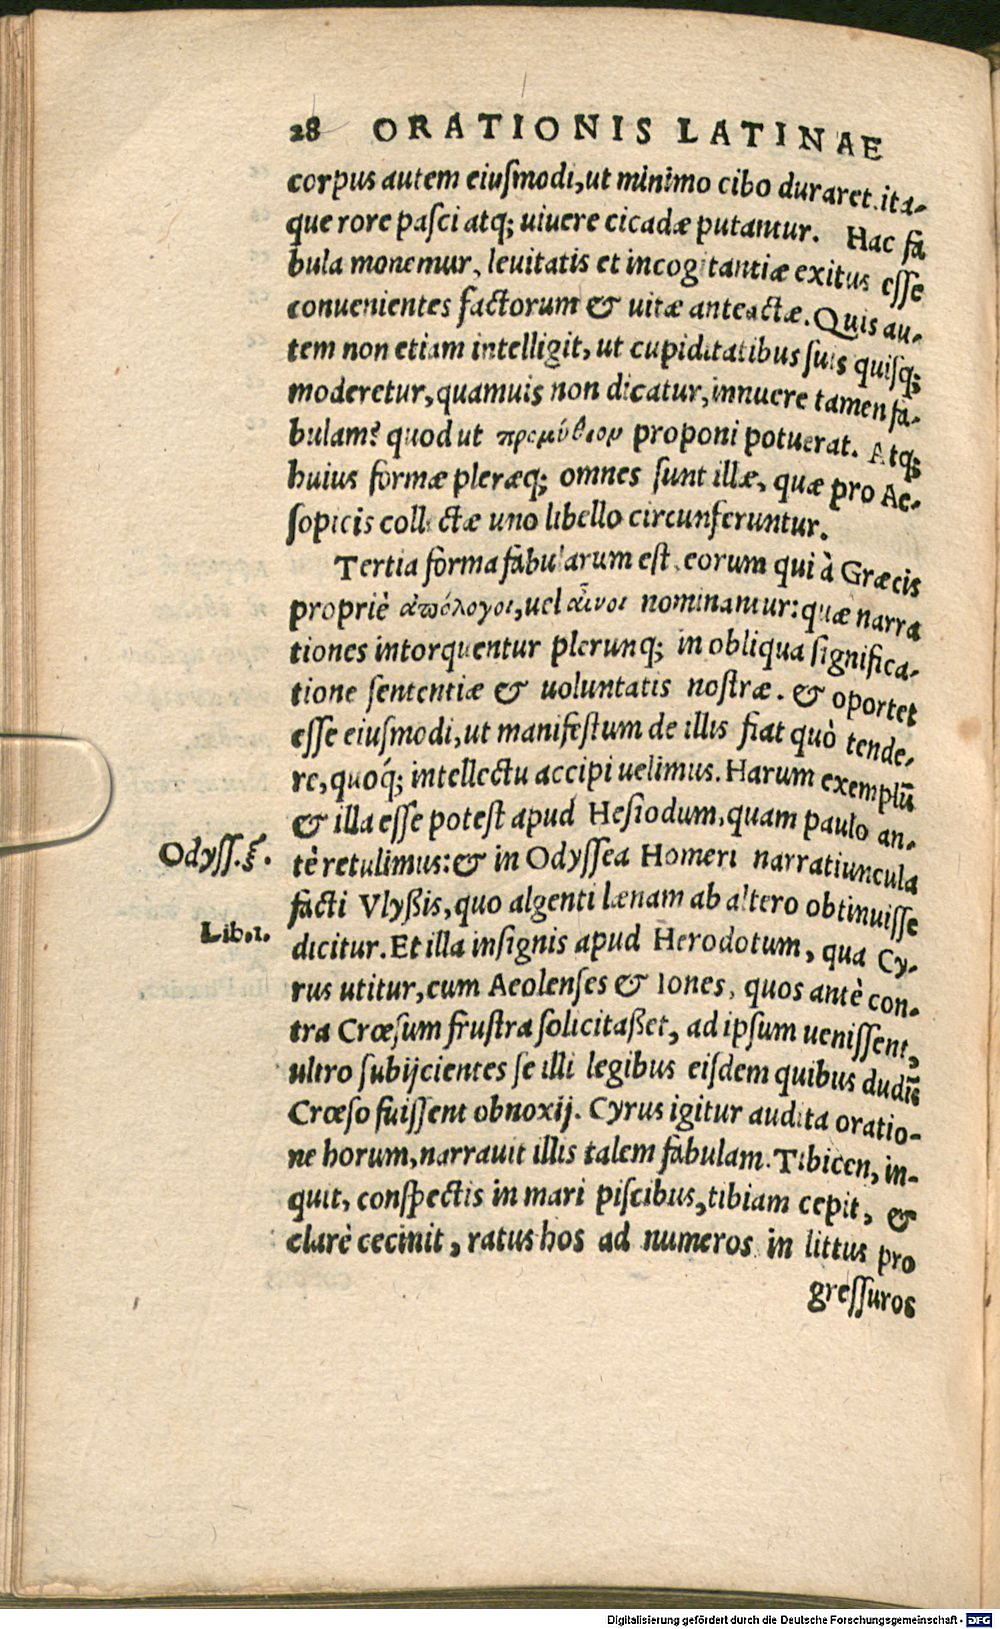 28 ORATIONIS LATINAE
corpus autem eiuſmodi, ut minimo cibo duraret. ita-
que rore paſci atq; uiuere cicadæ putantur. Hac fa
bula monemur, leuitatis et incogitantiæ exitus eſſe
conuenientes factorum & uitæ anteactæ. Quis au-
tem non etiam intelligit, ut cupiditatibus ſuis quiſq;
moderetur, quamuis non dicatur, innuere tamen fa-
bulam? quod ut προμύθιον proponi potuerat. Atq;
huius formæ pleræq; omnes ſunt illæ, quæ pro Ae-
ſopicis collectæ uno libello circunferuntur.
Tertia forma fabularum eſt, eorum qui à Græcis
propriè ἀπόλογοι, uel αἶνοι nominantur: quæ narra
tiones intorquentur plerunq; in obliqua ſignifica-
tione ſententiæ & uoluntatis noſtræ. & oportet
eſſe eiuſmodi, ut manifeſtum de illis fiat quò tende-
re, quoq́; intellectu accipi uelimus. Harum exemplũ
& illa eſſe poteſt apud Heſiodum, quam paulo an-
Odyſſ. ξ. tè retulimus: & in Odyſſea Homeri narratiuncula
facti Vlyßis, quo algenti lænam ab altero obtinuiſſe
Lib. 1. dicitur. Et illa inſignis apud Herodotum, qua Cy-
rus utitur, cum Aeolenſes & Iones, quos antè con-
tra Crœſum fruſtra ſolicitaßet, ad ipſum ueniſſent,
ultro ſubijcientes ſe illi legibus eiſdem quibus dudũ
Crœſo fuiſſent obnoxij. Cyrus igitur audita oratio-
ne horum, narrauit illis talem fabulam. Tibicen, in-
quit, conſpectis in mari piſcibus, tibiam cepit, &
clarè cecinit, ratus hos ad numeros in littus pro
greſſuros
Digitalisierung gefördert durch die Deutsche Forschungsgemeinschaft - DFG